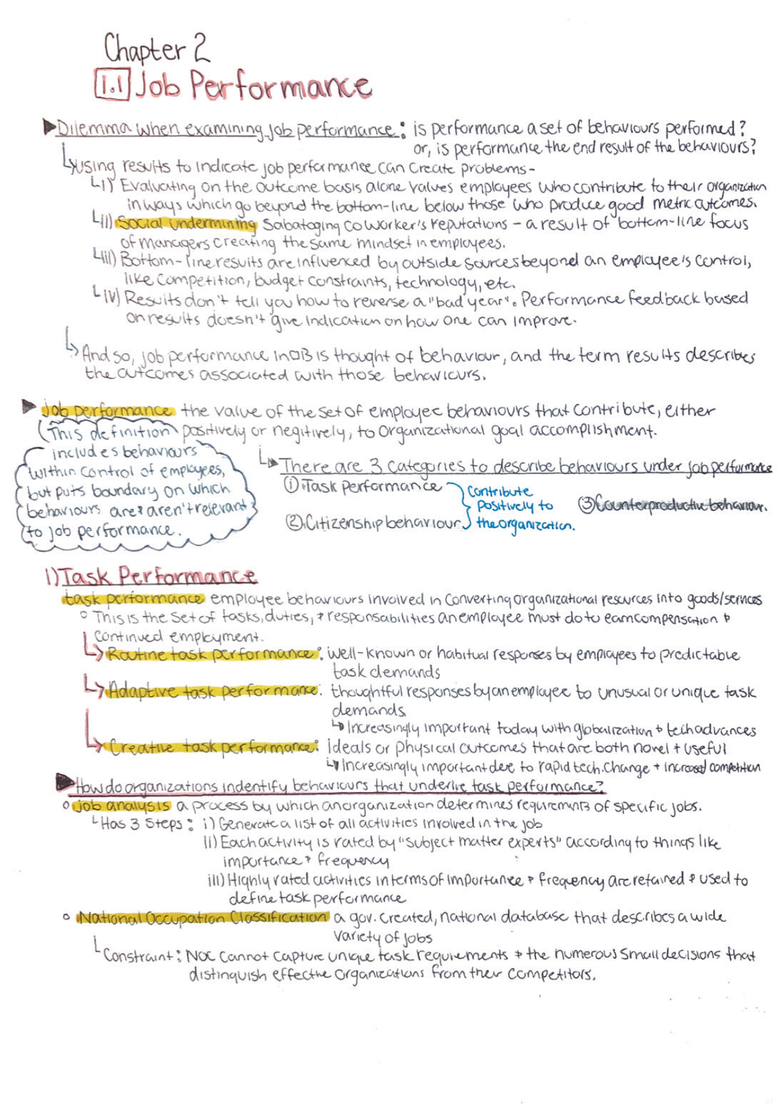 Chapter 2
1.1 Job Performance
Dilemma when examining job performance: is performance a set of behaviours performed?
or, is performance the end result of the behaviours?
Using results to indicate job performance can create problems-
i) Evaluating on the outcome basis alone values employees who contribute to their organization
in ways which go beyond the bottom-line below those who produce good metric outcomes.
ii) Social undermining Sabatoging coworker's reputations - a result of bottom-line focus
of managers creating the same mindset in employees.
iii) Bottom-line results are influenced by outside sources beyond an employee's control,
like competition, budget constraints, technology, etc.
iv) Results don't tell you how to reverse a "bad year". Performance feedback based
on results doesn't give indication on how one can improve.
And so, job performance in OB is thought of behaviour, and the term results describes
the outcomes associated with those behaviours.
job performance the value of the set of employee behaviours that contribute, either
positively or negitively, to organizational goal accomplishment.
This definition
includes behaviours
within control of employees,
but puts boundary on which
behaviours are & aren't relevant
to job performance.
There are 3 categories to describe behaviours under job performance
① Task Performance
② Citizenship behaviour
contribute
positively to
the organization.
③ Counterproductive behaviour.
1) Task Performance
task performance employee behaviours involved in converting organizational resources into goods/services
° This is the set of tasks, duties, + responsabilities an employee must do to earn compensation +
continued employment.
Routine task performance: well-known or habitual responses by employees to predictable
task demands
Adaptive task performance: thoughtful responses by an employee to unusual or unique task
demands
Increasingly important today with globalization + tech advances
Creative task performance: ideals or physical outcomes that are both novel + useful
Increasingly important due to rapid tech. change + increased competition
How do organizations indentify behaviours that underlie task performance?
° job analysis a process by which an organization determines requirements of specific jobs.
Has 3 Steps: i) Generate a list of all activities involved in the job
ii) Each activity is rated by "subject matter experts" according to things like
importance + frequency
iii) Highly rated activities in terms of importance + frequency are retained + used to
define task performance
° National Occupation Classification a gov. created, national database that describes a wide
variety of jobs
Constraint: NOC cannot capture unique task requirements + the numerous small decisions that
distinguish effective organizations from their competitors.